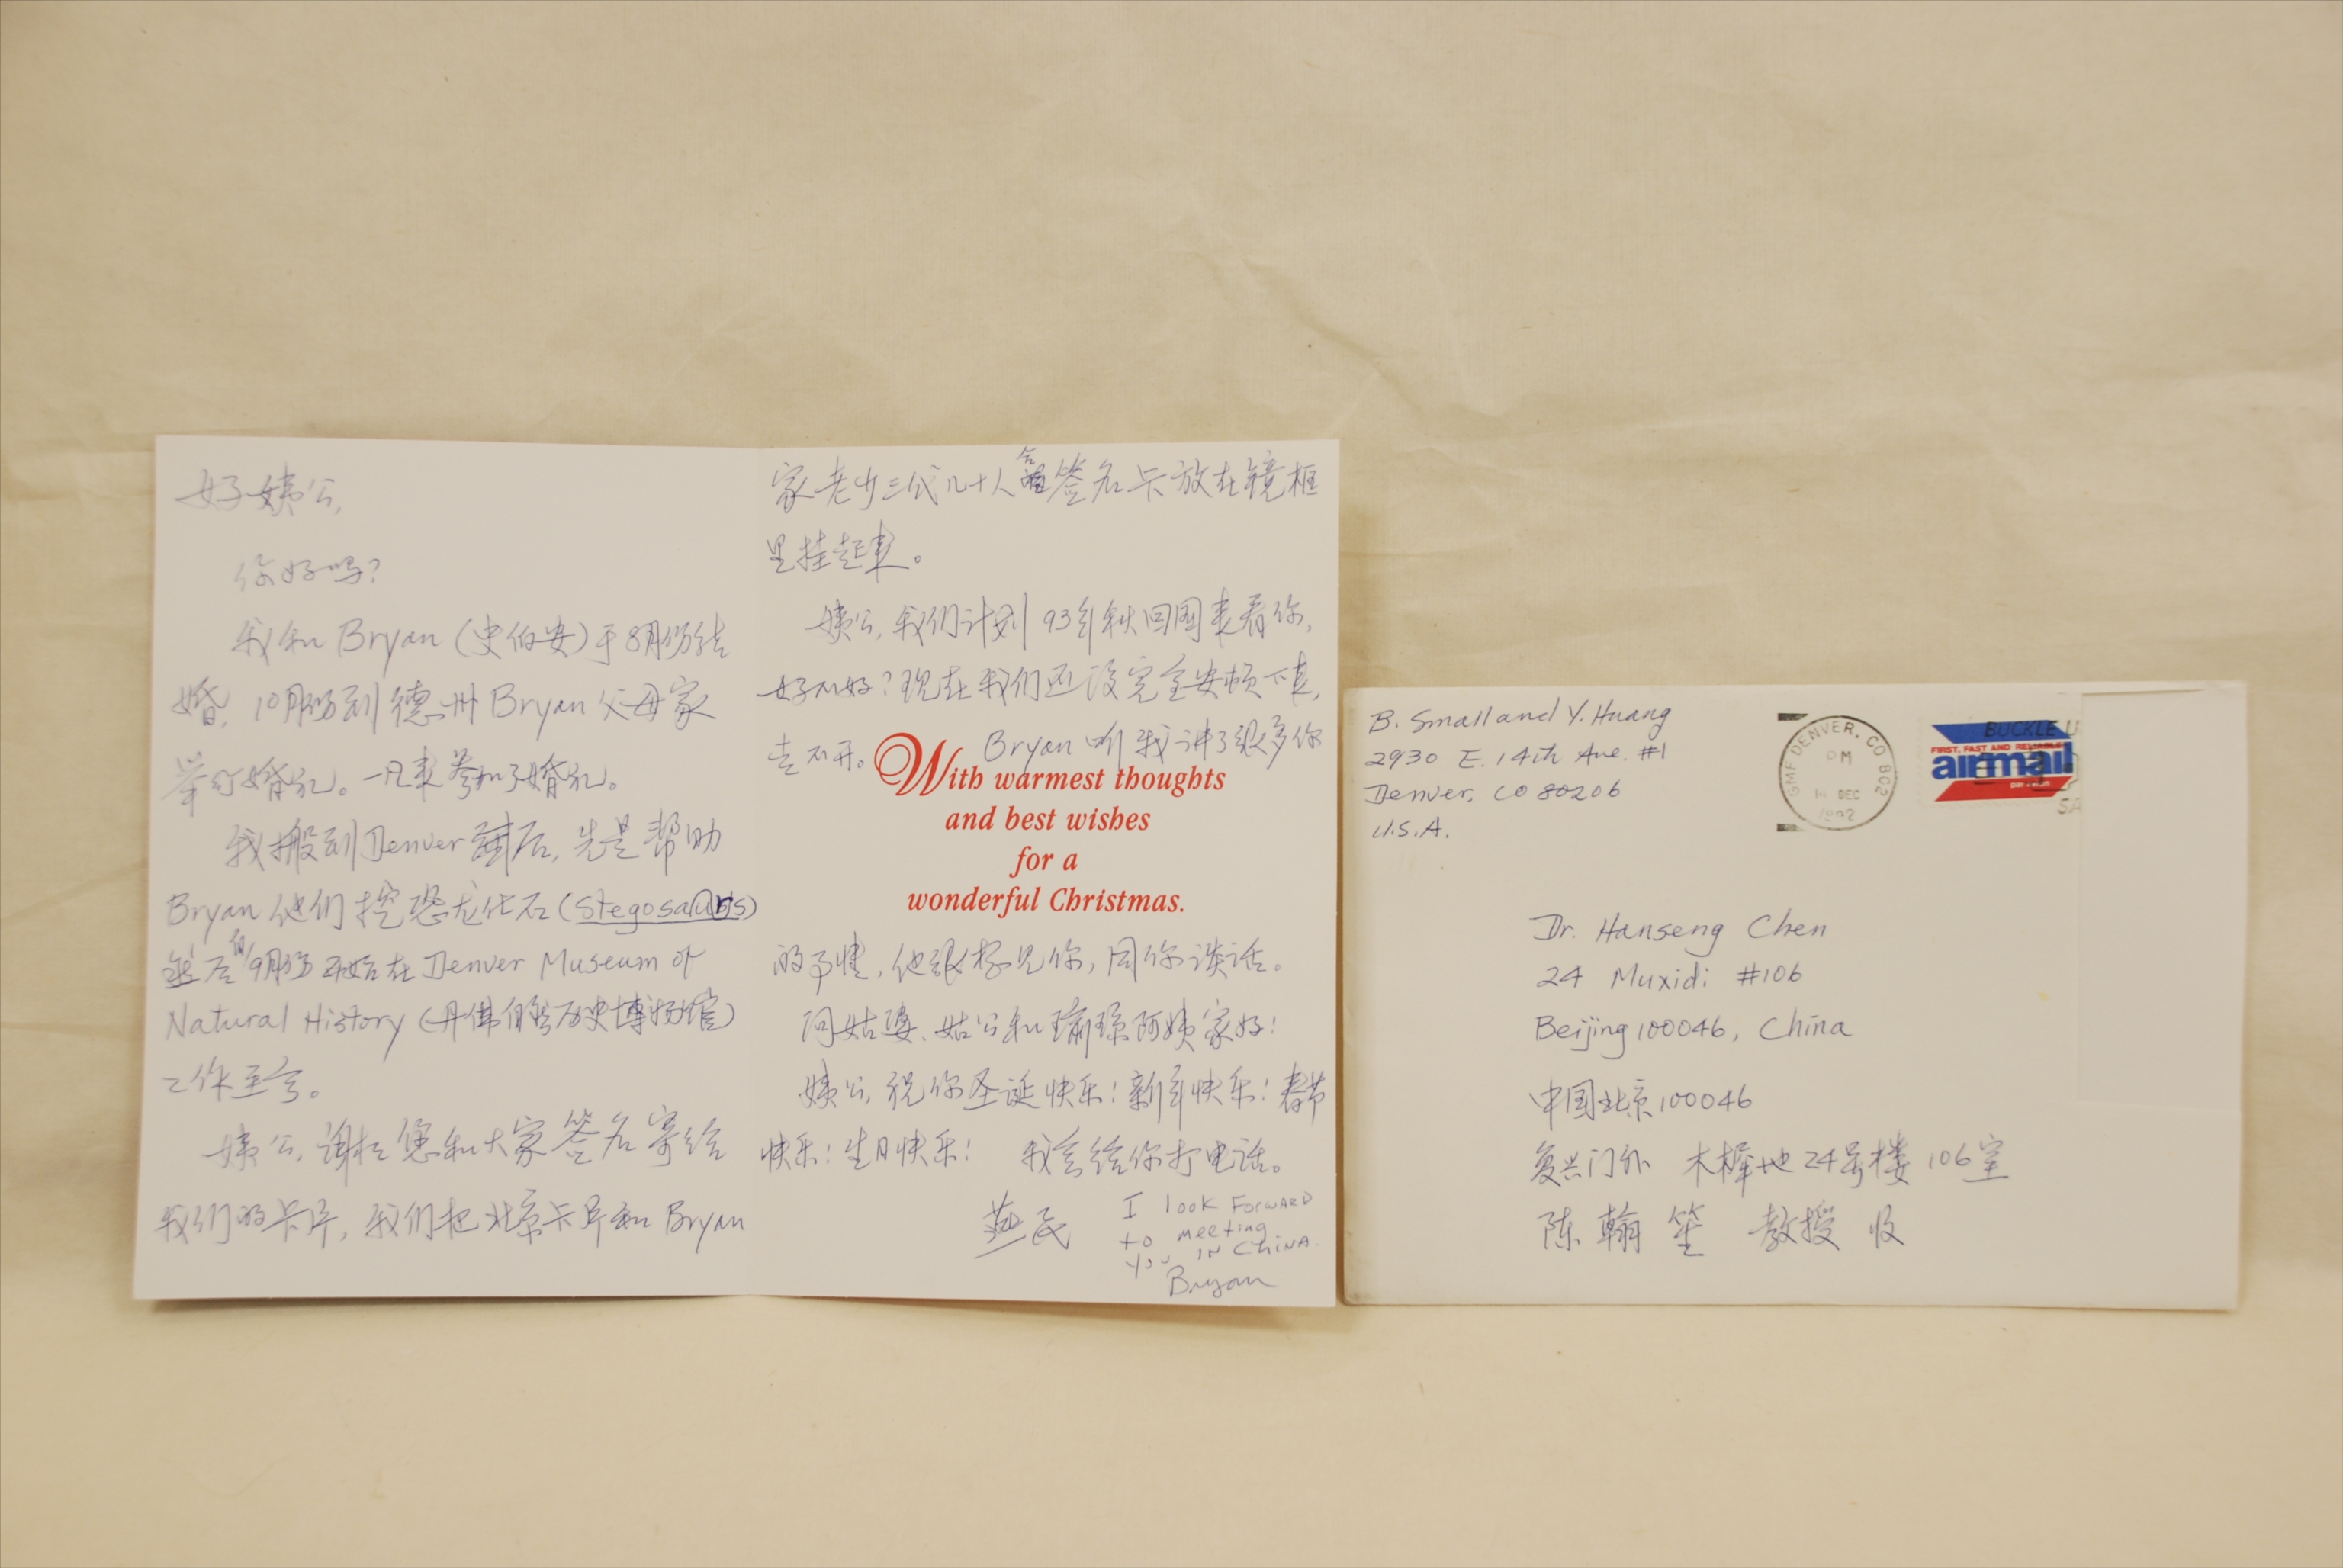 好姨公,
你好吗?
我和 Bryan (史伯安) 于8月份结
婚, 10月份到德州 Bryan 父母家
举行婚礼。一凡来参加了婚礼。
我搬到 Denver 后, 先是帮助
Bryan 他们挖恐龙化石 (Stegosaurus)
然后自9月份开始在 Denver Museum of
Natural History (丹佛自然历史博物馆)
工作至今。
姨公, 谢谢您和大家签名寄给
我们的卡片, 我们把北京卡片和 Bryan
家老少三代几十人合签名卡放在镜框
里挂起来。
姨公, 我们计划93年秋回国来看你,
好不好? 现在我们还没完全安顿下来,
走不开。 Bryan 听我讲了很多你
With warmest thoughts
and best wishes
for a
wonderful Christmas.
的事情, 他很想见你, 同你谈话。
问姑婆、姑公和瑜琼阿姨家好!
姨公, 祝你圣诞快乐! 新年快乐! 春节
快乐! 生日快乐! 我会给你打电话。
燕民
I look forward
to meeting
you in China.
Bryan
B. Small and Y. Huang
2930 E. 14th Ave. #1
Denver, CO 80206
U.S.A.
GMF DENVER, CO 802
PM
14 DEC
1992
BUCKLE U
FIRST, FAST AND RELIABLE
airmail
par avion
SA
Dr. Hanseng Chen
24 Muxidi #106
Beijing 100046, China
中国北京100046
复兴门外 木樨地24号楼106室
陈翰笙 教授 收